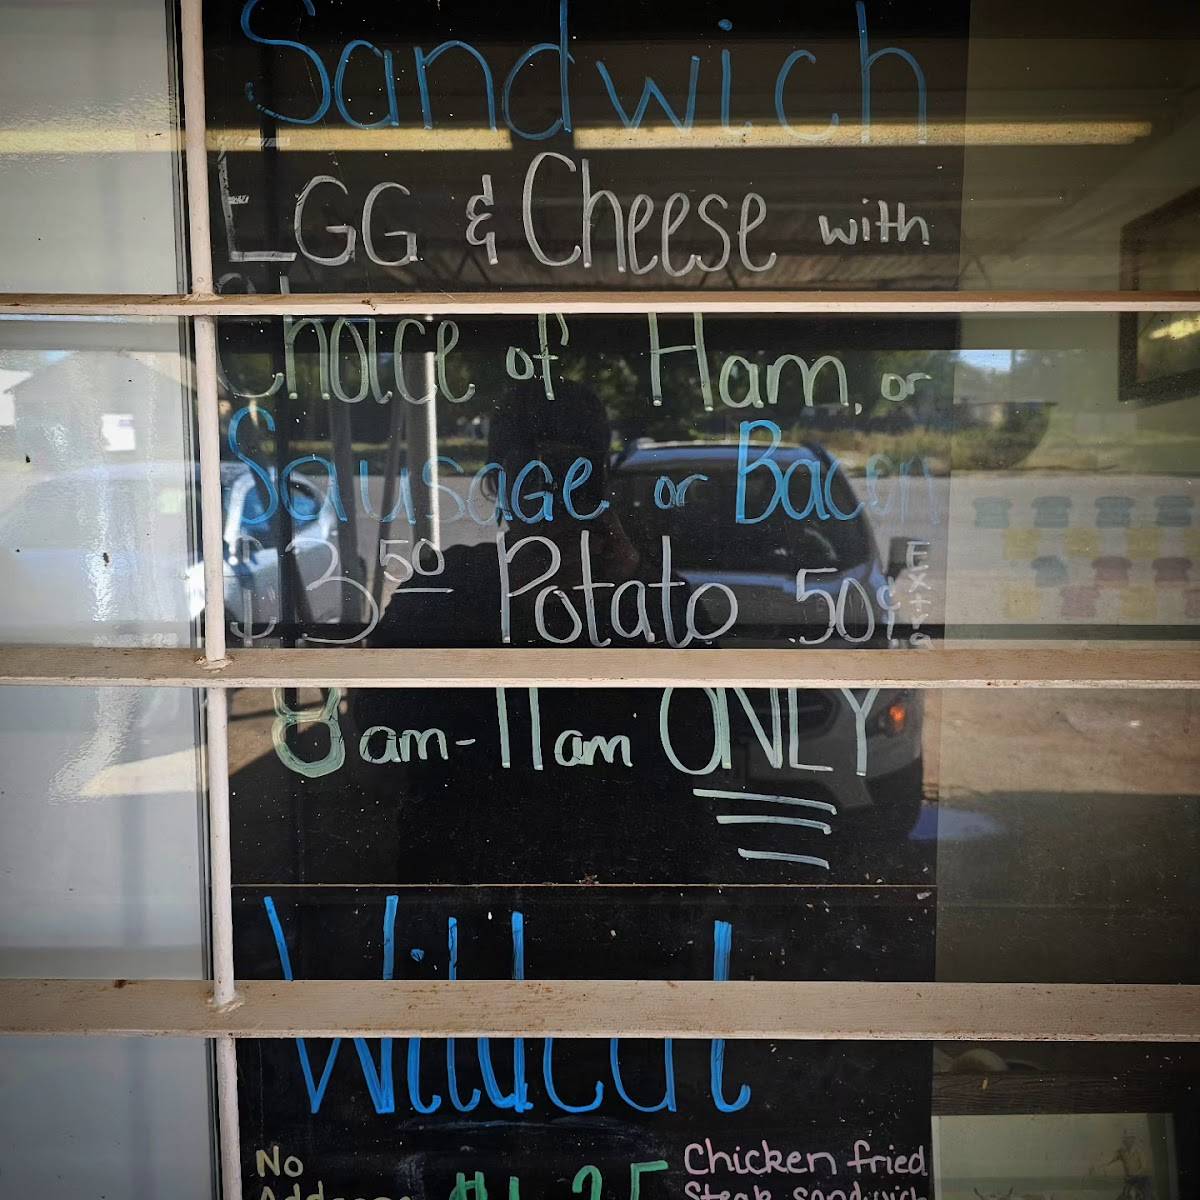 Sandwich
EGG & Cheese with
Choice of Ham, or
Sausage or Bacon
$3.50 Potato .50¢ Extra
8am-11am ONLY
Wildcat
No
Chicken fried
Steak sandwich